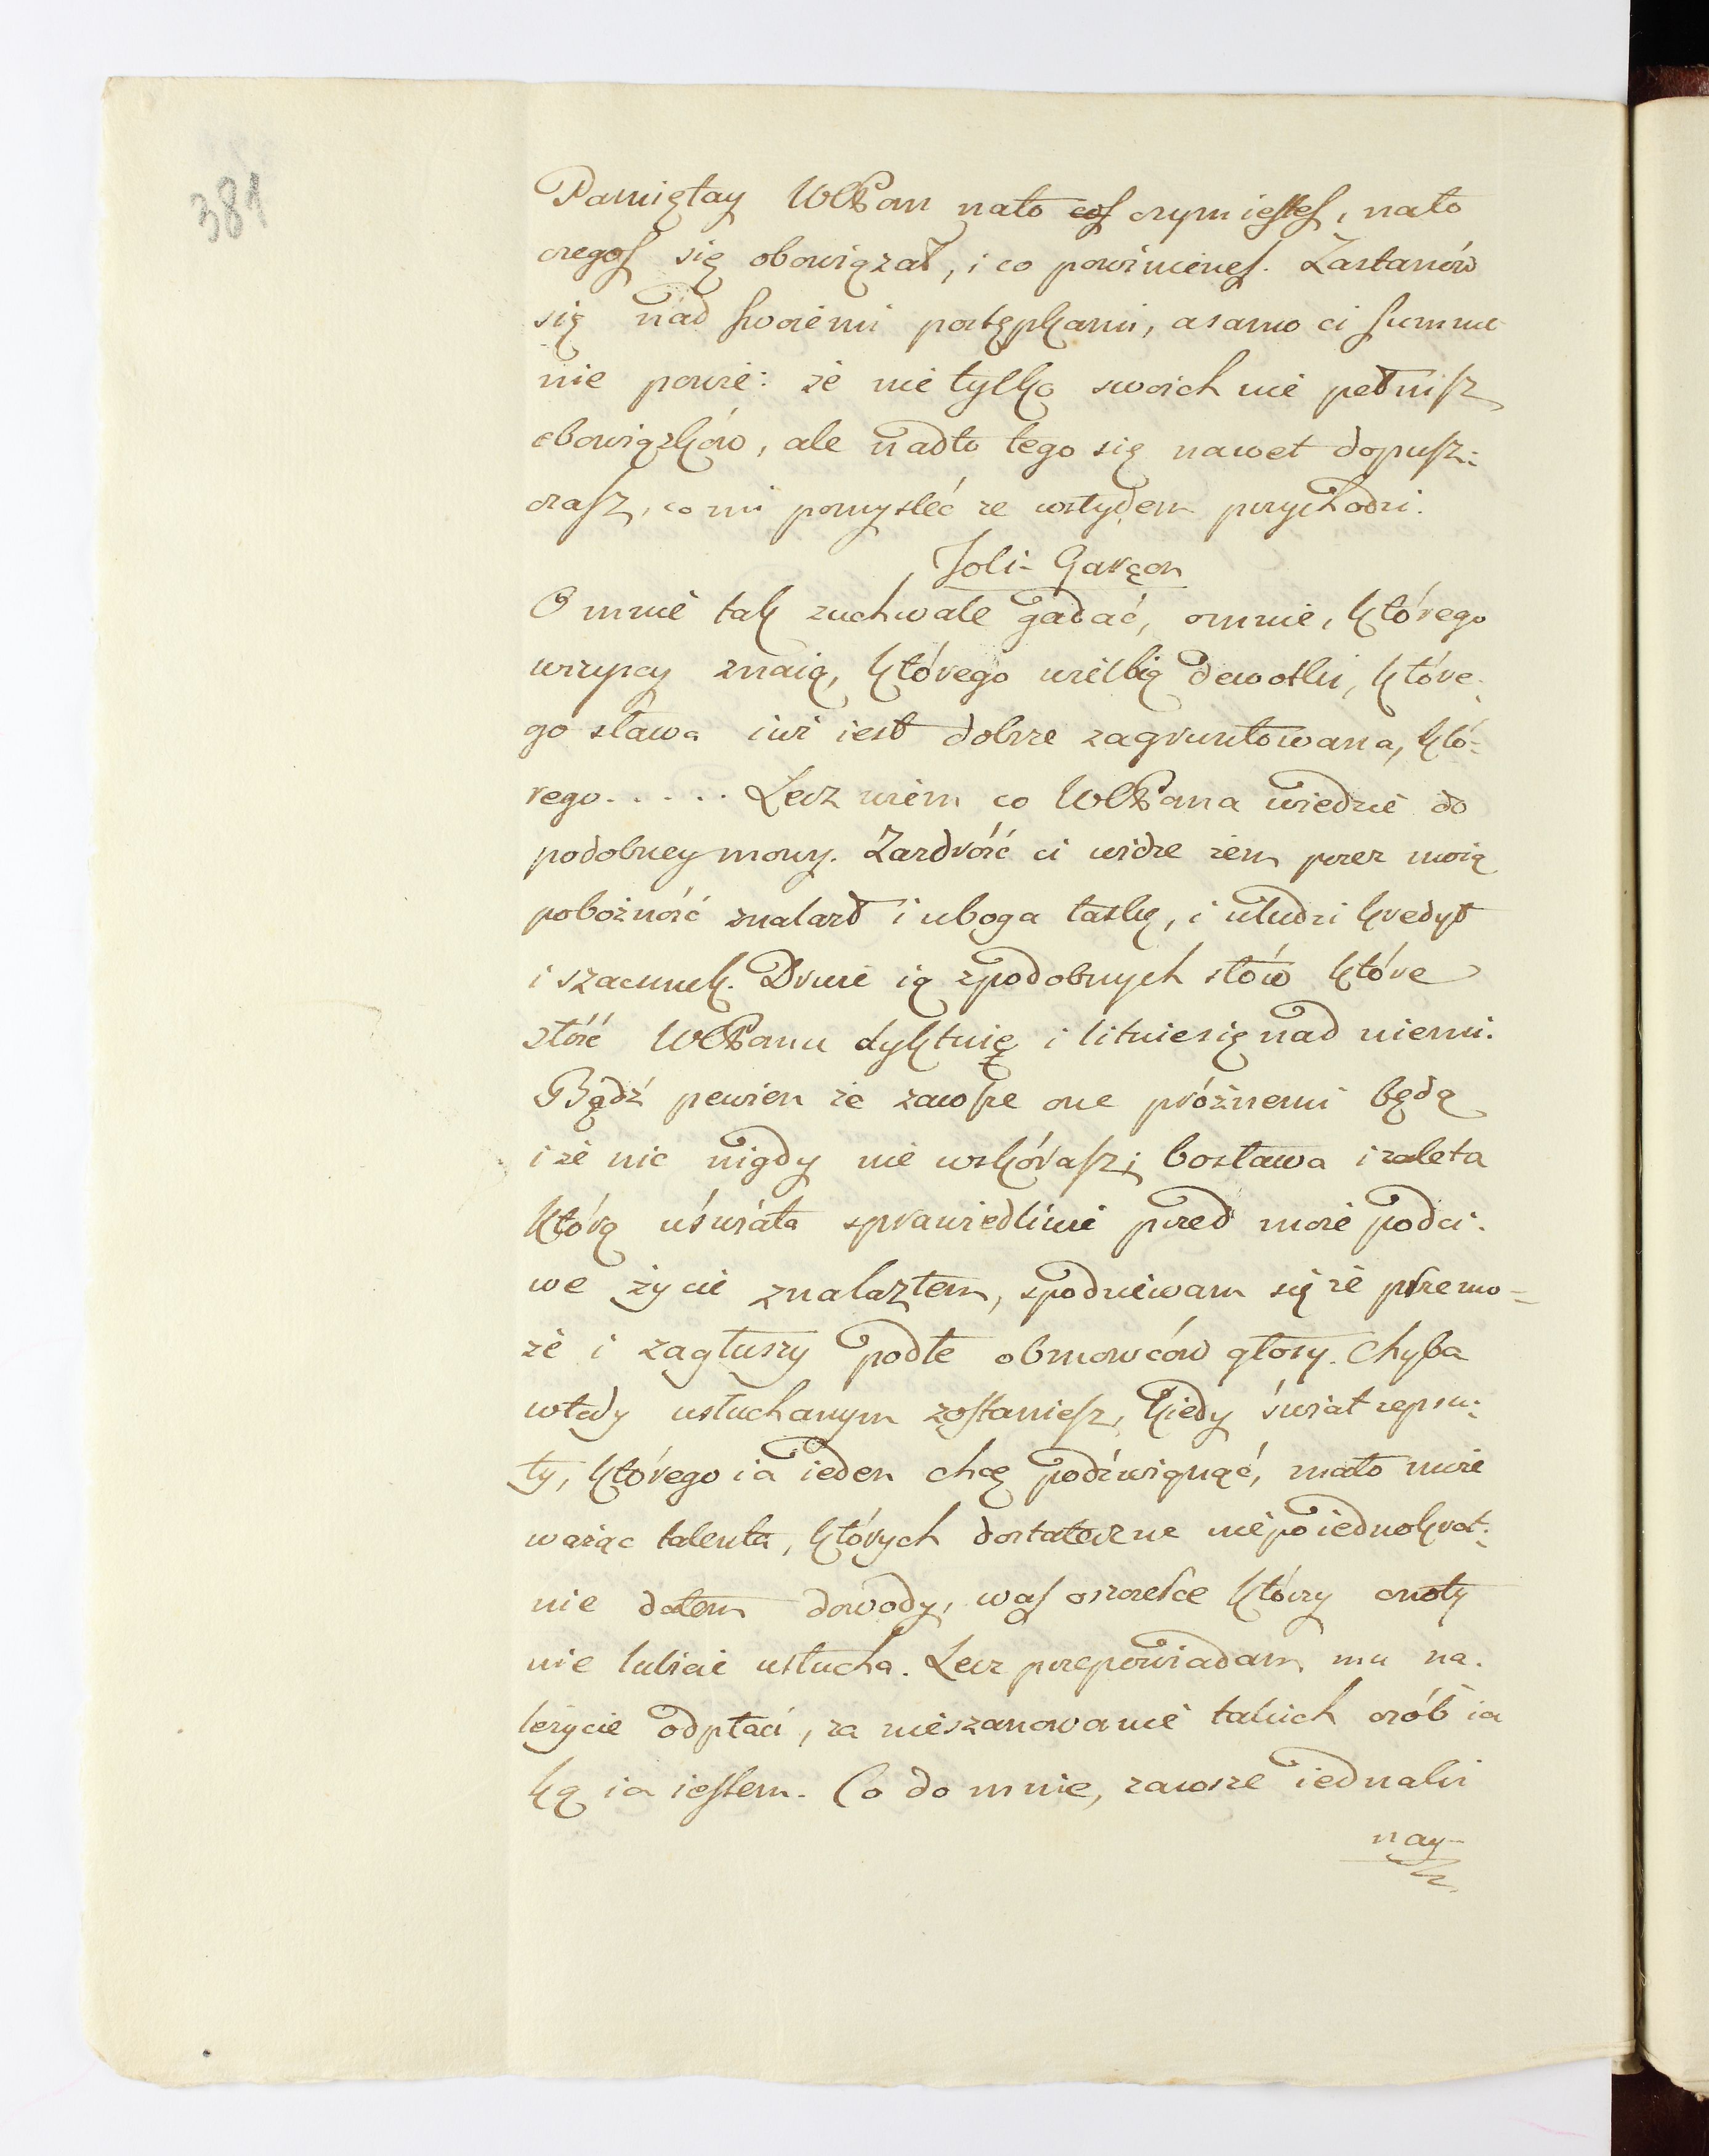 381
Pamiętay WCPan nato coś czym iesteś, nato
czegoś się obowiązał, i co powinieneś. Zastanów
się nad swoiemi postępkami, a samo ci summe
nie powie: że nie tylko swoich nie pełnisz
obowiązków, ale nadto tego się nawet dopusz:
czasz, co mi pomysleć ze wstydem przychodzi.
Joli-Garçon
O mnie tak zuchwale gadać, omnie, którego
wszyscy znaią, którego wielbią dewotki, które:
go sława iuż iest dobrze zagruntowana, któ:
rego..... Lecz wiem co WCPana wiedzie do
podobney mowy. Zazdrość ci widze żem przez moią
pobożność znalazł i uboga łaskę, i uludzi kredyt
i szacunek. Drwie ią zpodobnych słów które
złość WCPanu dyktuię i lituiesię nad niemi.
Bądź pewien że zawsze one próżnemi będą
i że nic nigdy nie wskórasz; bosława i zaleta
którą uświata sprawiedliwie przed moie podci:
we życie znalazłem, spodziewam się że przemo-
że i zagłuszy podłe obmowców głosy. Chyba
wtedy usłuchanym zostaniesz, kiedy świat zepsu:
ty, którego ia ieden chcę podźwignąć, mało mnie
ważąc talenta, których dostateczne niepoiednokrot:
nie dałem dowody, waś oszczefce który cnoty
nie lubicie usłucha. Lecz przepowiadam mu na:
leżycie odpłaci, za nieszanowanie takich osób ia
ką ia iestem. Co do mnie, zawsze iednaki
nay-